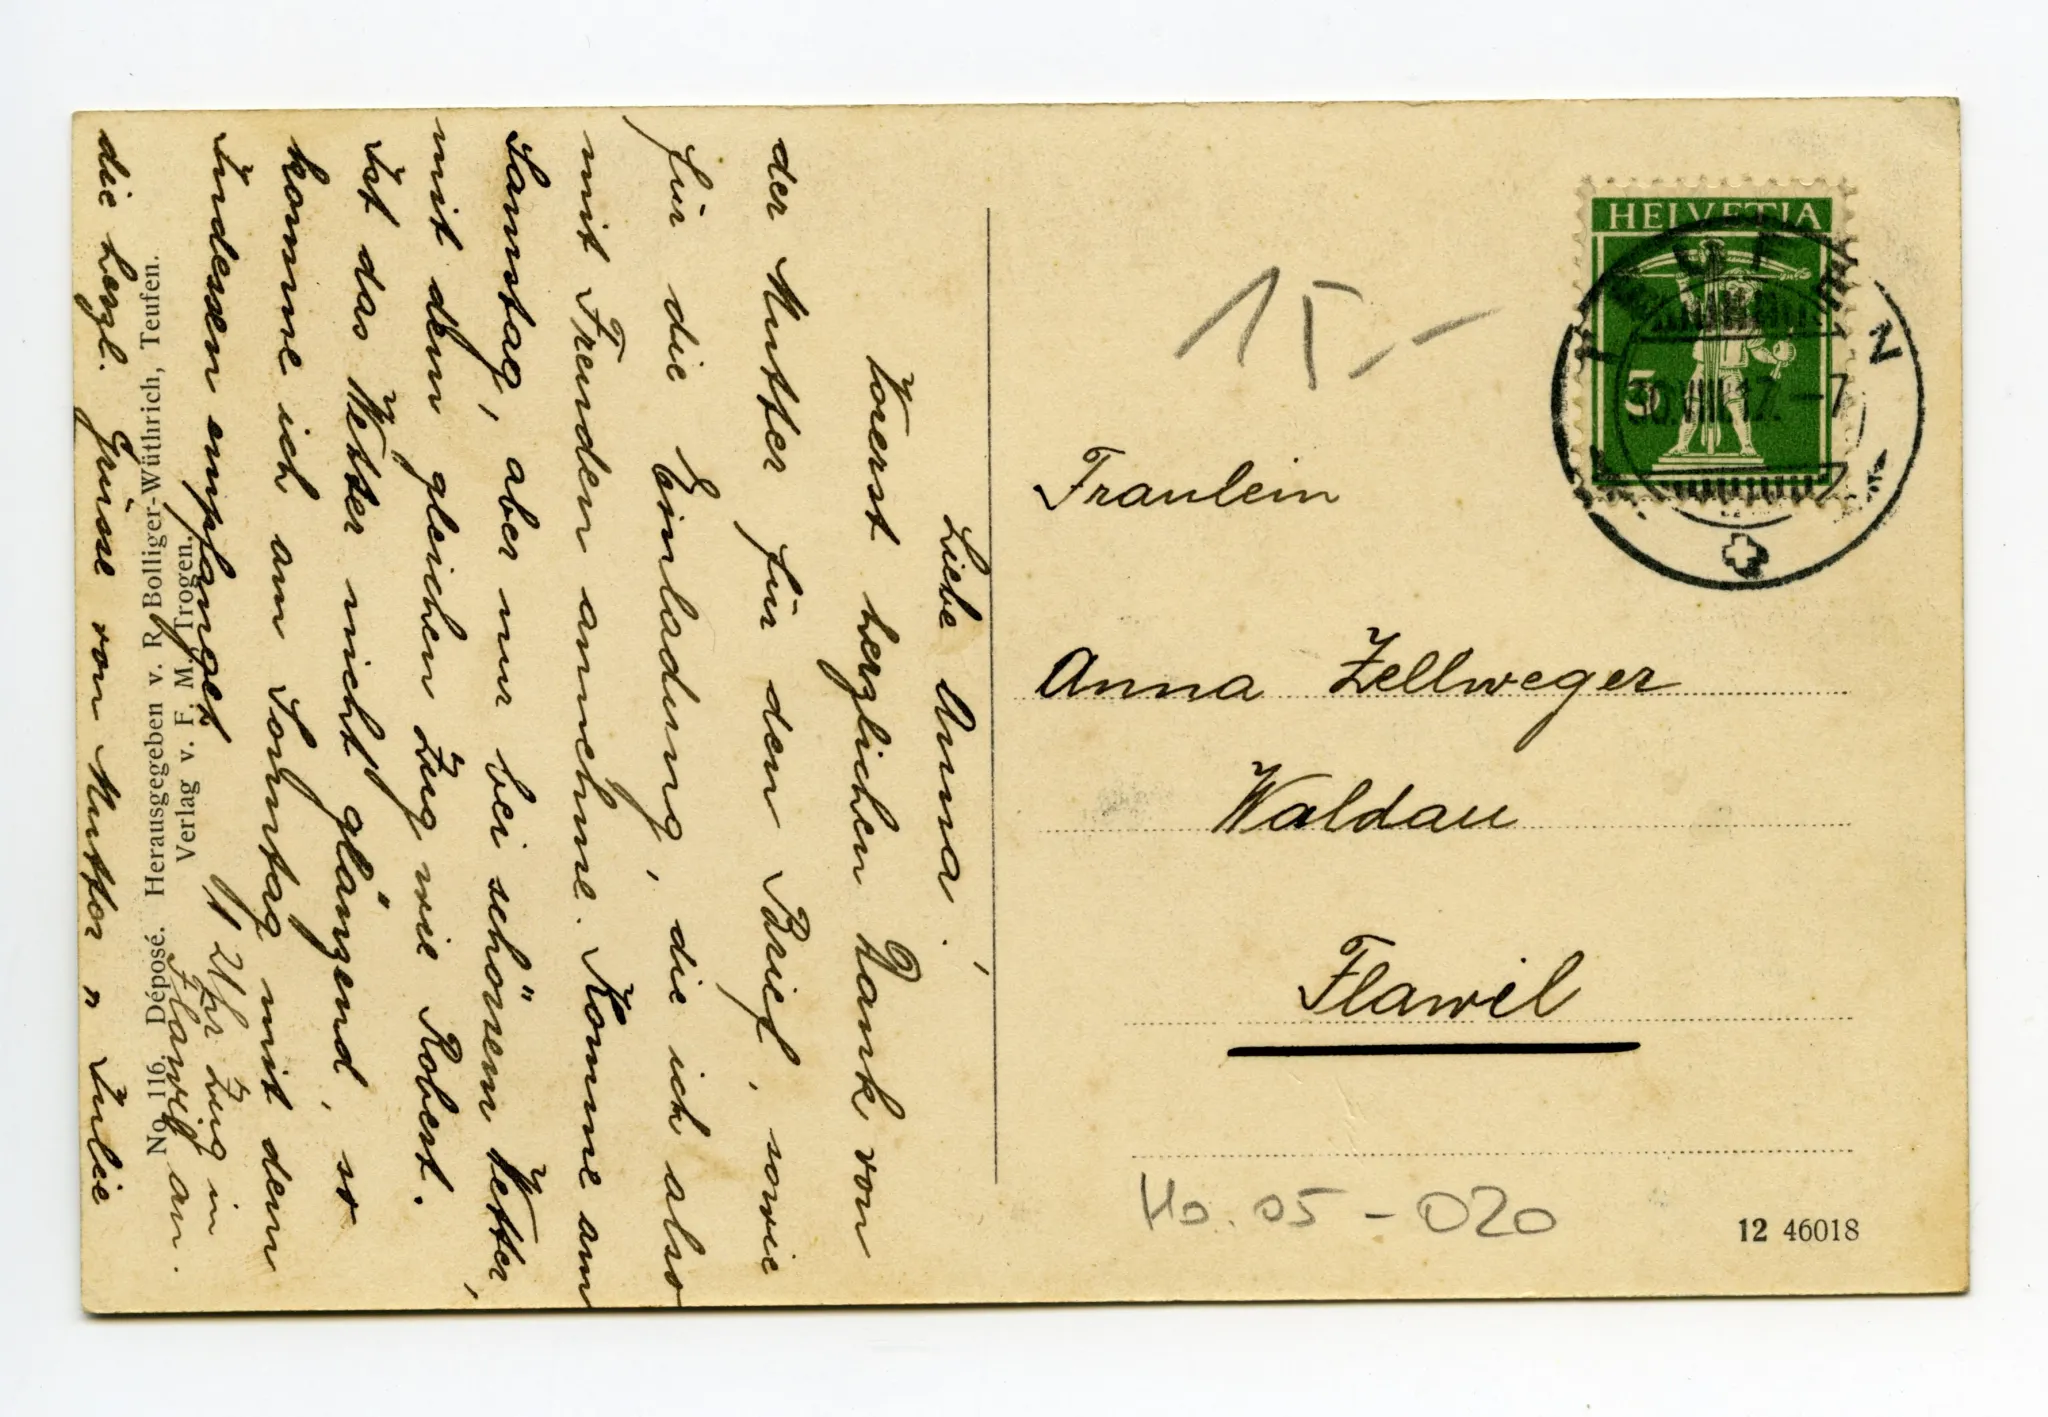 Liebe Anna!
Vorerst herzlichen Dank von
der Mutter für den Brief, sowie
für die Einladung, die ich also
mit Freuden annehme. Komme am
Samstag, aber nur bei schönem Wetter,
mit dem gleichen Zug wie Robert.
Ist das Wetter nicht glänzend, so
komme ich am Sonntag mit dem
11 Uhr Zug in
Flawil an.
Indessen empfanget
die herzl. Grüsse von Mutter u Julie
No. 116. Déposé. Herausgegeben v. R. Bolliger-Wüthrich, Teufen.
Verlag v. F. M. Trogen.
HELVETIA
5
TEUFEN
30.VIII.17.-7
15.-
Fraulein
Anna Zellweger
Waldau
Flawil
Ho. 05-020
12 46018